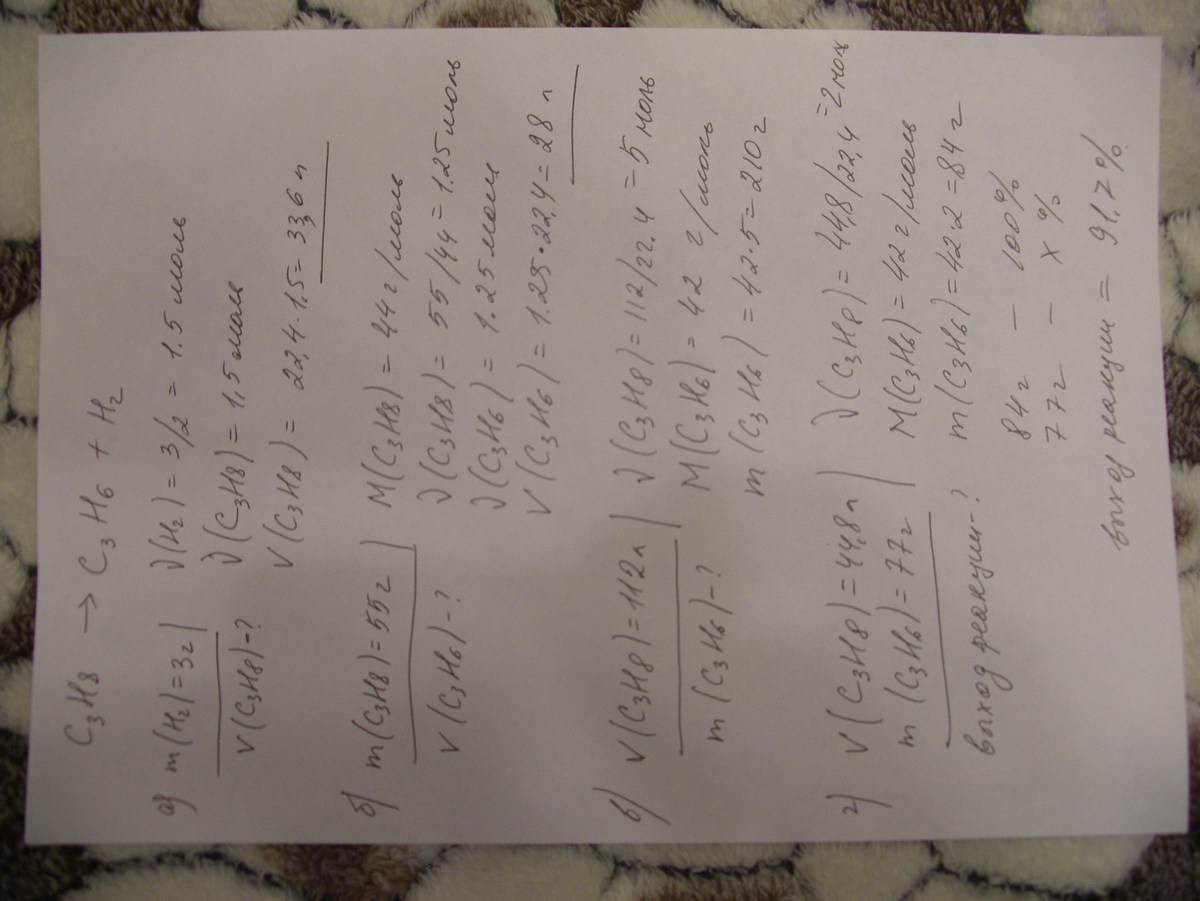 C3H8 → C3H6 + H2
а) m(H2)=3г
V(C3H8)-?
ν(H2) = 3/2 = 1.5 моль
ν(C3H8) = 1,5 моля
V(C3H8) = 22,4·1.5= 33,6 л
б) m(C3H8)=55г
V(C3H6)-?
M(C3H8) = 44г/моль
ν(C3H8) = 55/44 = 1.25 моль
ν(C3H6) = 1.25 моля
V(C3H6) = 1.25·22,4 = 28 л
в) V(C3H8)=112л
m(C3H6)-?
ν(C3H8)=112/22.4 = 5 моль
M(C3H6) = 42 г/моль
m(C3H6) = 42·5=210г
г) V(C3H8)=44,8л
m(C3H6)=77г
выход реакции-?
ν(C3H8) = 44,8/22,4 =2мол
M(C3H6)=42г/моль
m(C3H6)=42·2=84г
84г — 100%
77г — x%
выход реакции = 91,7%